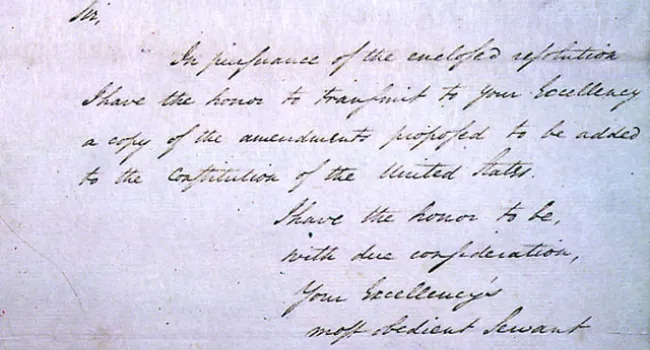 Sir,
In purſuance of the encloſed reſolution
I have the honor to tranſmit to your Excellency
a copy of the amendments propoſed to be added
to the Conſtitution of the United States.
I have the honor to be,
with due conſideration,
Your Excellency's
moſt obedient Servant